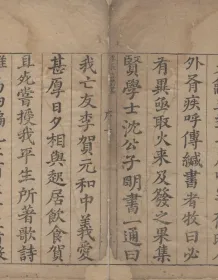 外有疾呼傳緘書者牧曰必
有異亟取火來及發之果集
賢學士沈公子明書一通曰
我亡友李賀元和中義愛
甚厚日夕相與起居飲食賀
且死嘗授我平生所著歌詩